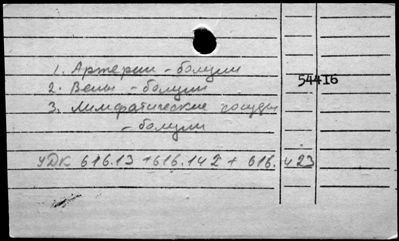 1. Артерии - болезни
54416
2. Вены - болезни
3. Лимфатические сосуды
- болезни
УДК 616.13 + 616.142 + 616.423